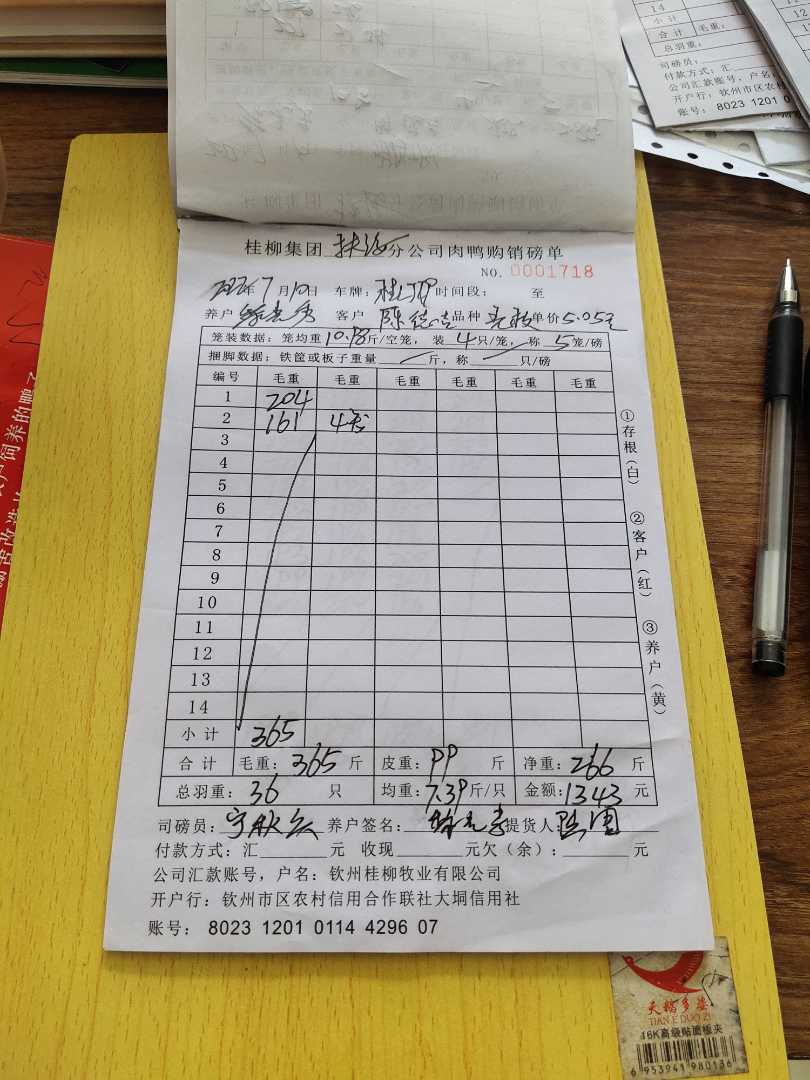 14
小 计
合 计 毛重：
总羽重：
司磅员：
付款方式：汇
公司汇款账号，户名：
开户行：钦州市区农村
账号： 8023 1201 0
12
桂柳集团 分公司肉鸭购销磅单
NO. 0001718
年 7 月 10 日 车牌： 时间段： 至
养户 客户 陈 品种 单价 5.05元
笼装数据：笼均重 10.98 斤/空笼，装 4 只/笼，称 5 笼/磅
捆脚数据：铁筐或板子重量 斤，称 只/磅
编号 毛重 毛重 毛重 毛重 毛重 毛重
1 204
2 161 4
3
4
5
6
7
8
9
10
11
12
13
14
小 计 365
合 计 毛重：365 斤 皮重：99 斤 净重：266 斤
总羽重：36 只 均重：7.39 斤/只 金额：1343 元
司磅员： 养户签名： 提货人：
付款方式：汇 元 收现 元欠（余）： 元
公司汇款账号，户名：钦州桂柳牧业有限公司
开户行：钦州市区农村信用合作联社大垌信用社
账号： 8023 1201 0114 4296 07
①存根（白）
②客户（红）
③养户（黄）
户饲养的鸭子
天籍多姿
TIAN E DUO ZI
16K高级贴面板夹
6 953941 980136